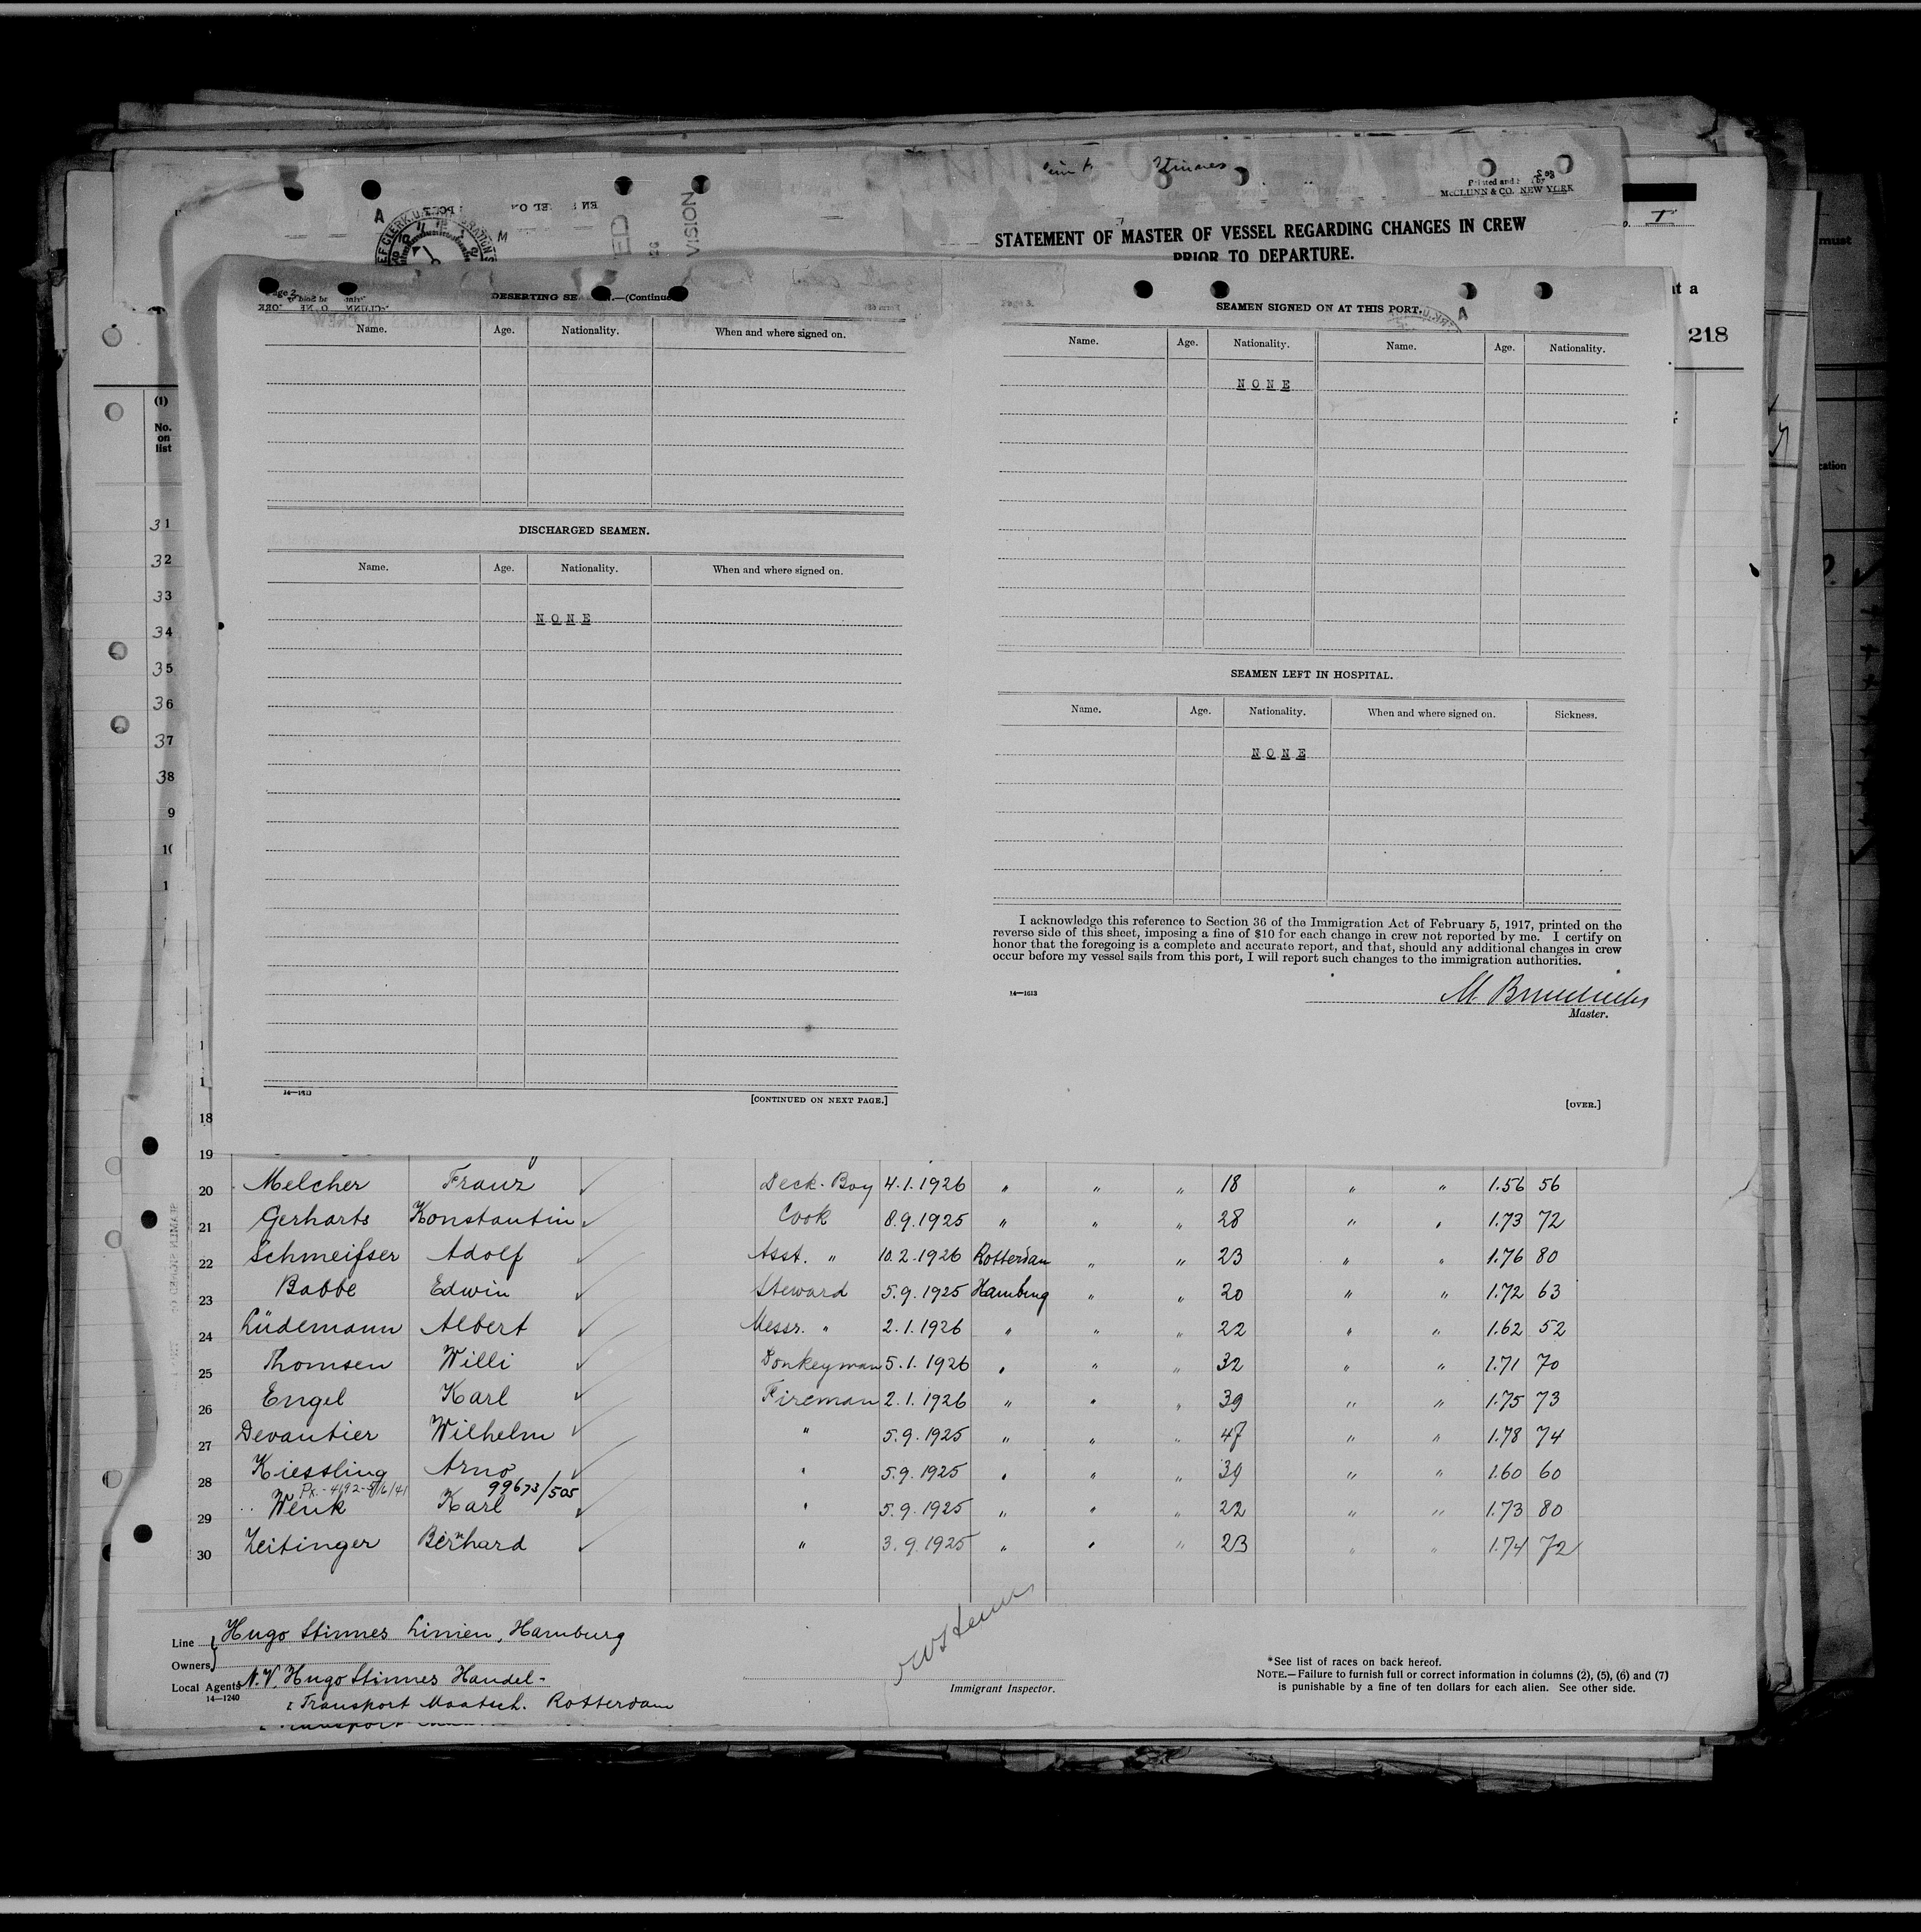 Stinnes
McCLUNN & CO. NEW YORK
STATEMENT OF MASTER OF VESSEL REGARDING CHANGES IN CREW
PRIOR TO DEPARTURE.
218
(1)
No.
on
list
31
32
33
34
35
36
37
38
9
Page 2.
DESERTING SEAMEN.—(Continued)
Name. Age. Nationality. When and where signed on.
DISCHARGED SEAMEN.
Name. Age. Nationality. When and where signed on.
NONE
14—1613
[CONTINUED ON NEXT PAGE.]
Page 3.
SEAMEN SIGNED ON AT THIS PORT.
Name. Age. Nationality. Name. Age. Nationality.
NONE
SEAMEN LEFT IN HOSPITAL.
Name. Age. Nationality. When and where signed on. Sickness.
NONE
I acknowledge this reference to Section 36 of the Immigration Act of February 5, 1917, printed on the
reverse side of this sheet, imposing a fine of $10 for each change in crew not reported by me. I certify on
honor that the foregoing is a complete and accurate report, and that, should any additional changes in crew
occur before my vessel sails from this port, I will report such changes to the immigration authorities.
14—1613
Master.
[OVER.]
18
19
20 Melcher Franz Deck-Boy 4.1.1926 " " " 18 " " 1.56 56
21 Gerharts Konstantin Cook 8.9.1925 " " " 28 " " 1.73 72
22 Schmeifser Adolf Asst. " 10.2.1926 Rotterdam " " 23 " " 1.76 80
23 Babbe Edwin Steward 5.9.1925 Hamburg " " 20 " " 1.72 63
24 Lüdemann Albert Messr. " 2.1.1926 " " " 22 " " 1.62 52
25 Thomsen Willi Donkeyman 5.1.1926 " " " 32 " " 1.71 70
26 Engel Karl Fireman 2.1.1926 " " " 39 " " 1.75 73
27 Devantier Wilhelm " 5.9.1925 " " " 47 " " 1.78 74
28 Kiessling Arno " 5.9.1925 " " " 39 " " 1.60 60
99673/505
29 Wenk Karl " 5.9.1925 " " " 22 " " 1.73 80
30 Zeitinger Bernhard " 3.9.1925 " " " 23 " " 1.74 72
Line Hugo Stinnes Linien, Hamburg
Owners
Local Agents N.V. Hugo Stinnes Handel-
14—1240
& Transport Maatsch. Rotterdam
Immigrant Inspector.
*See list of races on back hereof.
NOTE.—Failure to furnish full or correct information in columns (2), (5), (6) and (7)
is punishable by a fine of ten dollars for each alien. See other side.